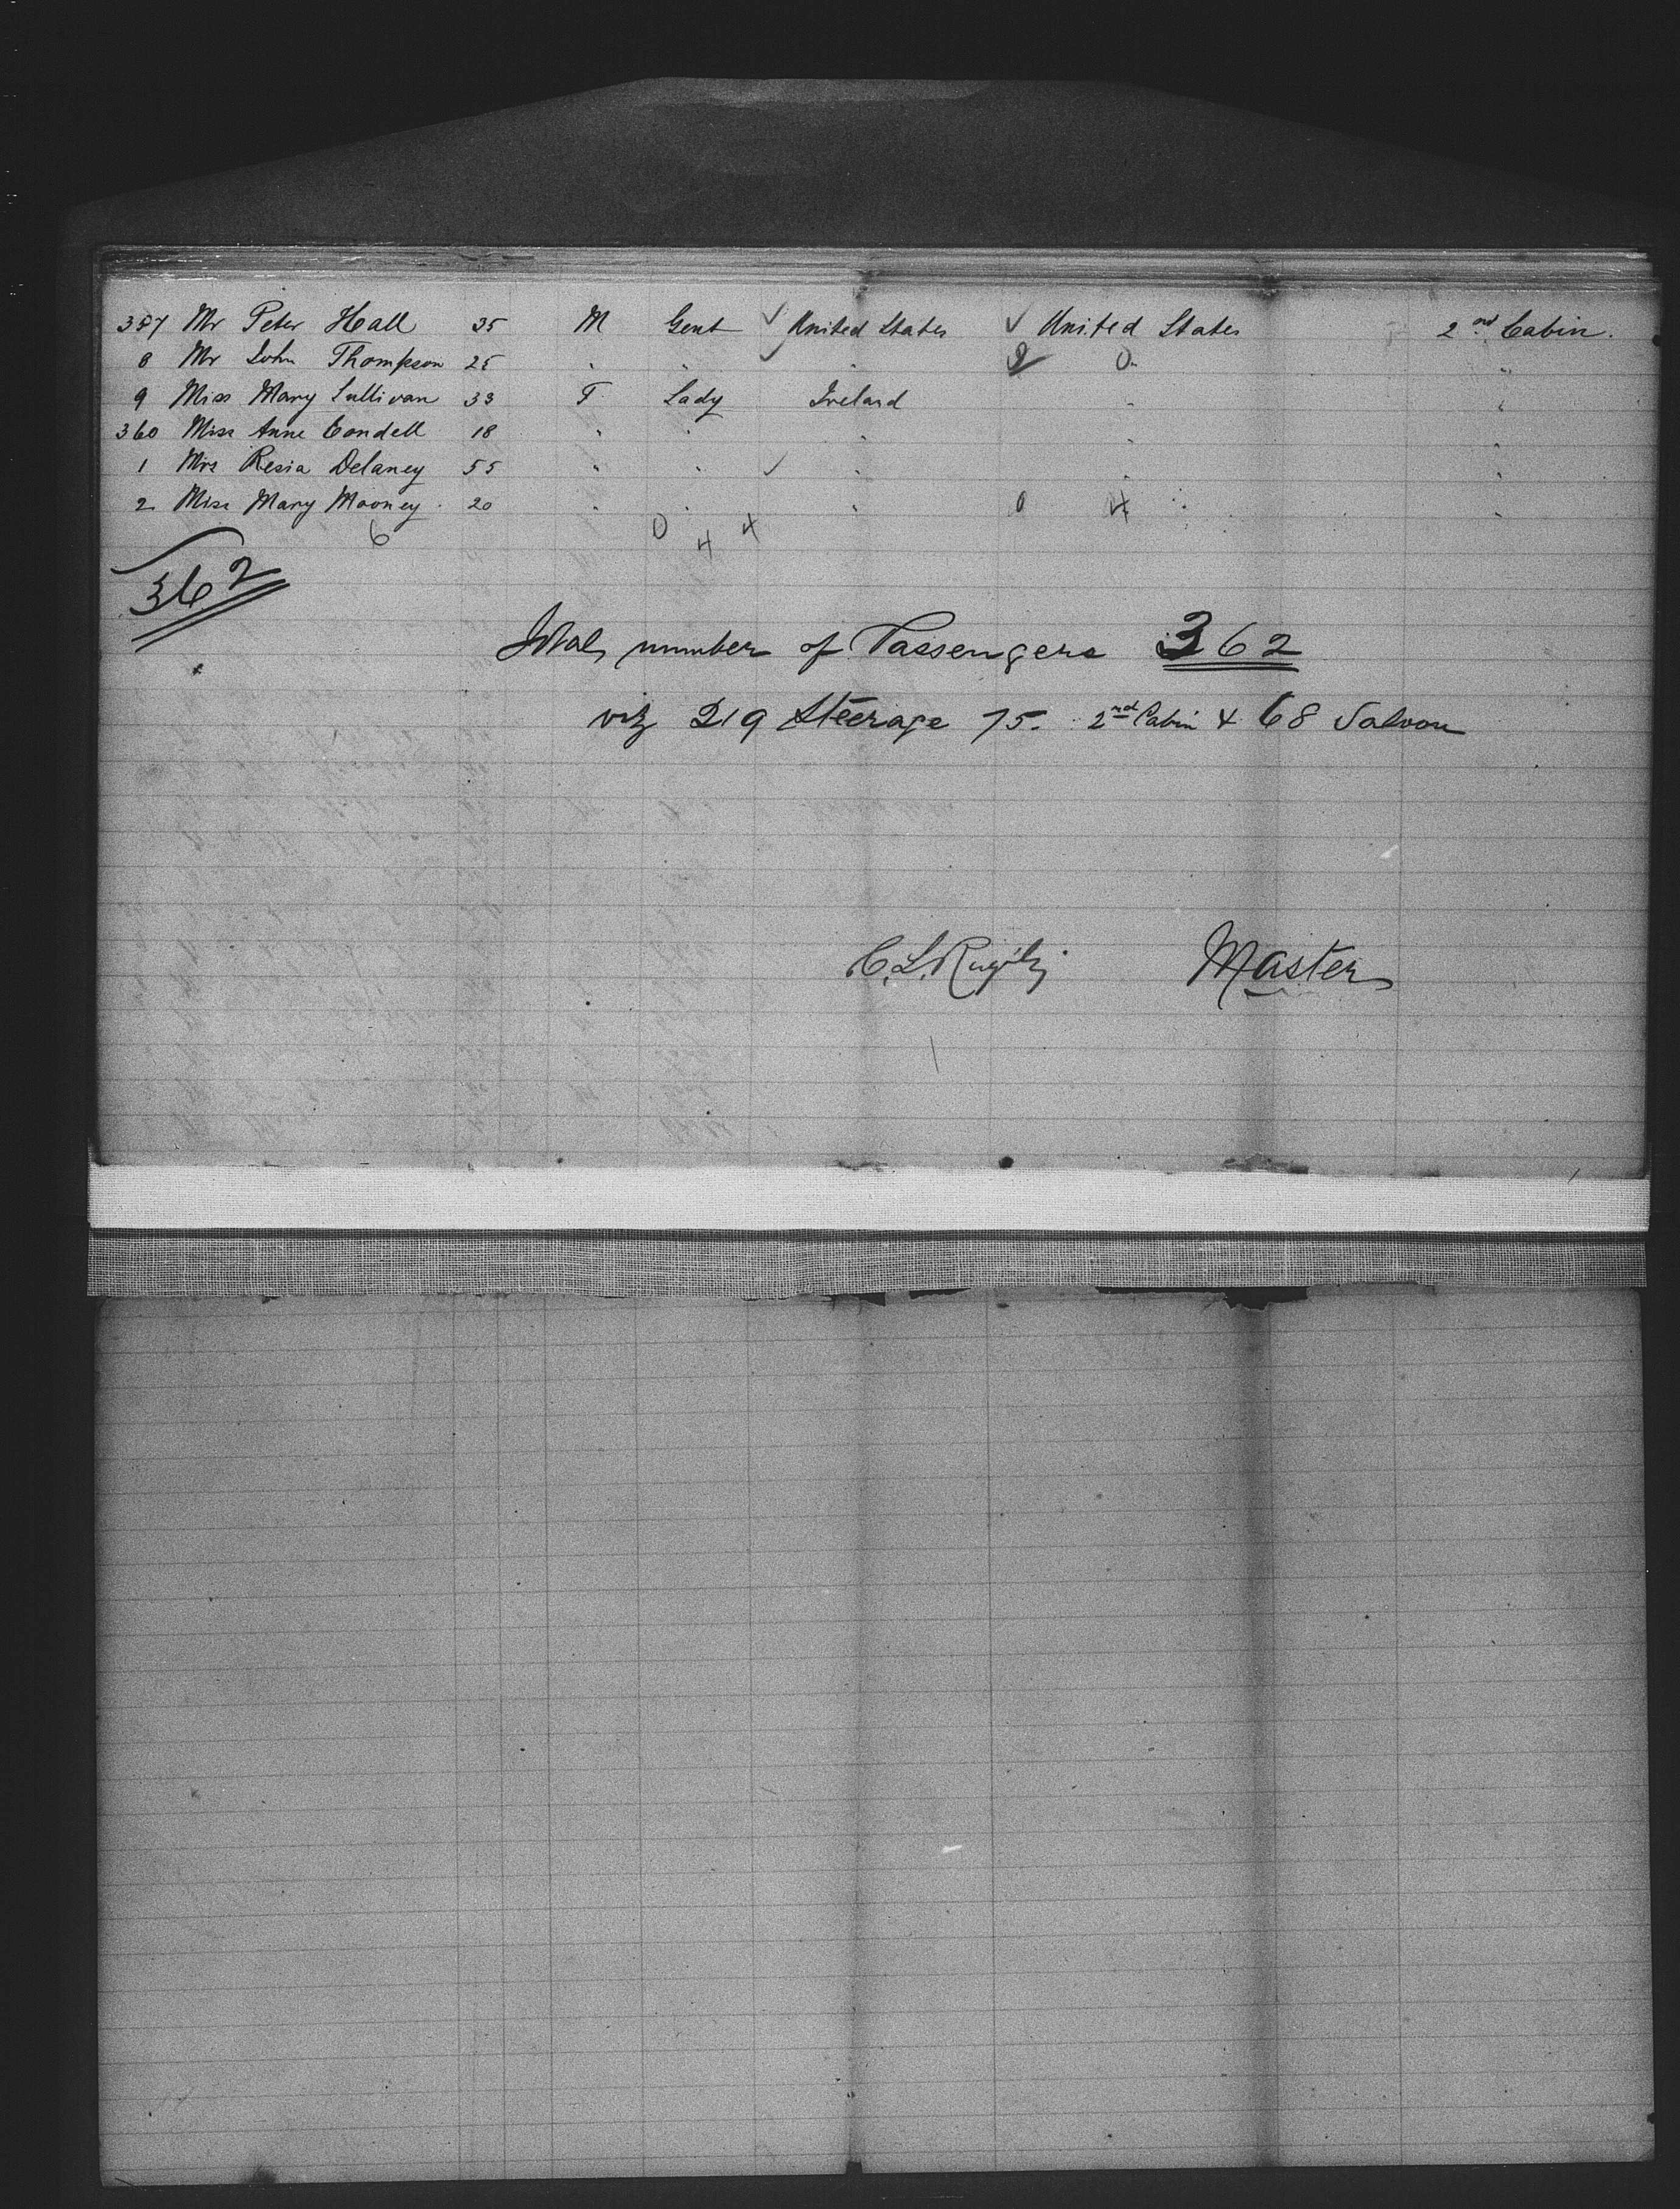 357 Mr Peter Hall 35 M Gent ✓ United States ✓ United States 2nd Cabin.
8 Mr John Thompson 25 " " ✓ " 2 0 "
9 Miss Mary Sullivan 33 F Lady Ireland " "
360 Miss Anne Condell 18 " " " " "
1 Mrs Resia Delaney 55 " " ✓ " " "
2 Miss Mary Mooney 20 " " " 0 4 "
6 0 4 4
362
Total number of Passengers 362
viz 219 Steerage 75. 2nd Cabin & 68 Saloon
C. L. Master